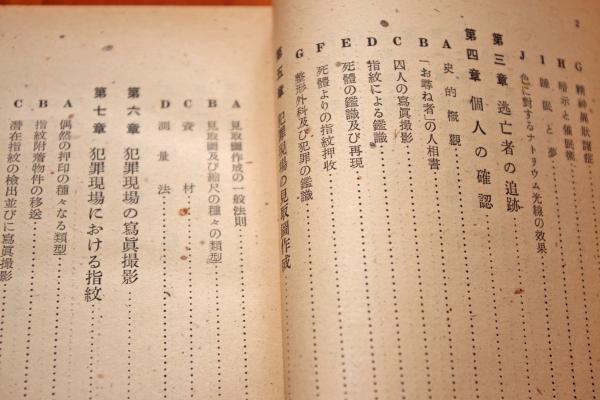 2
G 精神異狀諸症
H 暗示と催眠術
I 睡眠と夢
J 色に對するナトリウム光線の效果
第三章 逃亡者の追跡
第四章 個人の確認
A 史的概觀
B 「お尋ね者」の人相書
C 囚人の寫眞撮影
D 指紋による鑑識
E 死體の鑑識及び再現
F 死體よりの指紋押收
G 整形外科及び犯罪の鑑識
第五章 犯罪現場の見取圖作成
A 見取圖作成の一般法則
B 見取圖及び縮尺の種々の類型
C 資材
D 測量法
第六章 犯罪現場の寫眞撮影
第七章 犯罪現場における指紋
A 偶然の押印の種々なる類型
B 指紋附着物件の移送
C 潜在指紋の檢出並びに寫眞撮影